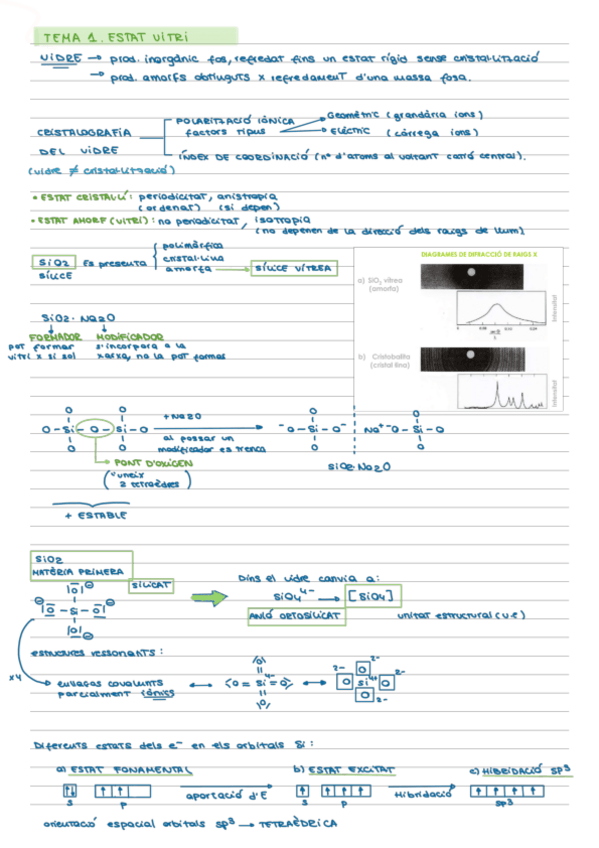 TEMA 1. ESTAT VITRI
VIDRE → prod. inorgànic fos, refredat fins un estat rígid sense cristal·lització
→ prod. amorfs obtinguts x refredament d'una massa fosa.
CRISTALOGRAFIA DEL VIDRE
(vidre ≠ cristal·lització)
POLARITZACIÓ IÒNICA
factors tipus
Geomètric (grandària ions)
Elèctric (càrrega ions)
ÍNDEX DE COORDINACIÓ (nº d'atoms al voltant catió central).
• ESTAT CRISTAL·LÍ: periodicitat, anisotropia
(ordenat) (si depen)
• ESTAT AMORF (VITRI): no periodicitat, isotropia
(no depenen de la direcció dels raigs de llum)
SiO2
SÍLICE
Es presenta
polimòrfica
cristal·lina
amorfa → SÍLICE VÍTREA
DIAGRAMES DE DIFRACCIÓ DE RAIGS X
a) SiO2 vítrea
(amorfa)
Intensitat
b) Cristobalita
(cristal·lina)
Intensitat
SiO2 · Na2O
FORMADOR MODIFICADOR
pot formar s'incorpora a la
vitri x si sol xarxa, no la pot formar
O O
O - Si - O - Si - O
O O
+ Na2O
al possar un
modificador es trenca
O O
⁻O - Si - O⁻ Na⁺ ⁻O - Si - O
O O
PONT D'OXIGEN
("uneix
2 tetraèdres)
SiO2·Na2O
+ ESTABLE
SiO2
MATÈRIA PRIMERA
SILICAT
Dins el vidre canvia a:
SiO4⁴⁻ → [SiO4]
ANIÓ ORTOSILICAT
unitat estructural (u.e)
|O|⊖
⊖ |O - Si - O| ⊖
|O|⊖
estructures ressonants:
x4
enllaços covalents
parcialment iònics
|O|
⟨O = Si = O⟩
|O|
2- O 2-
O Si⁴⁺ O
O 2-
Diferents estats dels e⁻ en els orbitals Si:
a) ESTAT FONAMENTAL b) ESTAT EXCITAT c) HIBRIDACIÓ SP³
aportació d'E Hibridació
s p s p sp³
orientació espacial orbitals sp³ → TETRAÈDRICA